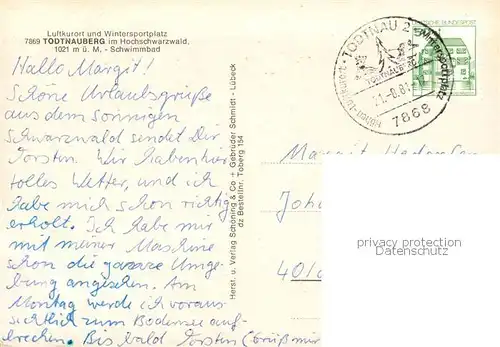 Luftkurort und Wintersportplatz
7869 TODTNAUBERG im Hochschwarzwald,
1021 m ü. M. - Schwimmbad
Hallo Margit!
Schöne Urlaubsgrüße
aus dem sonnigen
Schwarzwald sendet Dir
Torsten. Wir haben hier
tolles Wetter, und ich
habe mich schon richtig
erholt. Ich habe mir
mit meiner Maschine
schon die ganze Umge-
bung angesehen. Am
Montag werde ich voraus
sichtlich zum Bodensee auf-
brechen. Bis bald Torsten (Grüß mir
Herst. u. Verlag Schöning & Co + Gebrüder Schmidt - Lübeck
dz Bestellnr. Toberg 164
TODTNAU 2
Wintersportplatz
TODTNAUBERG
-8.81
7868
DEUTSCHE BUNDESPOST
Margit
Joha
40/a
privacy protection
Datenschutz